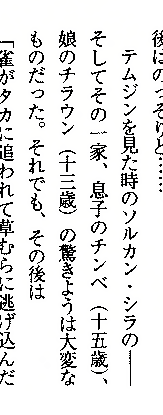 後はのっそりと……
テムジンを見た時のソルカン・シラの――
そしてその一家、息子のチンベ（十五歳）、
娘のチラウン（十三歳）の驚きようは大変な
ものだった。それでも、その後は
「雀がタカに追われて草むらに逃げ込んだ